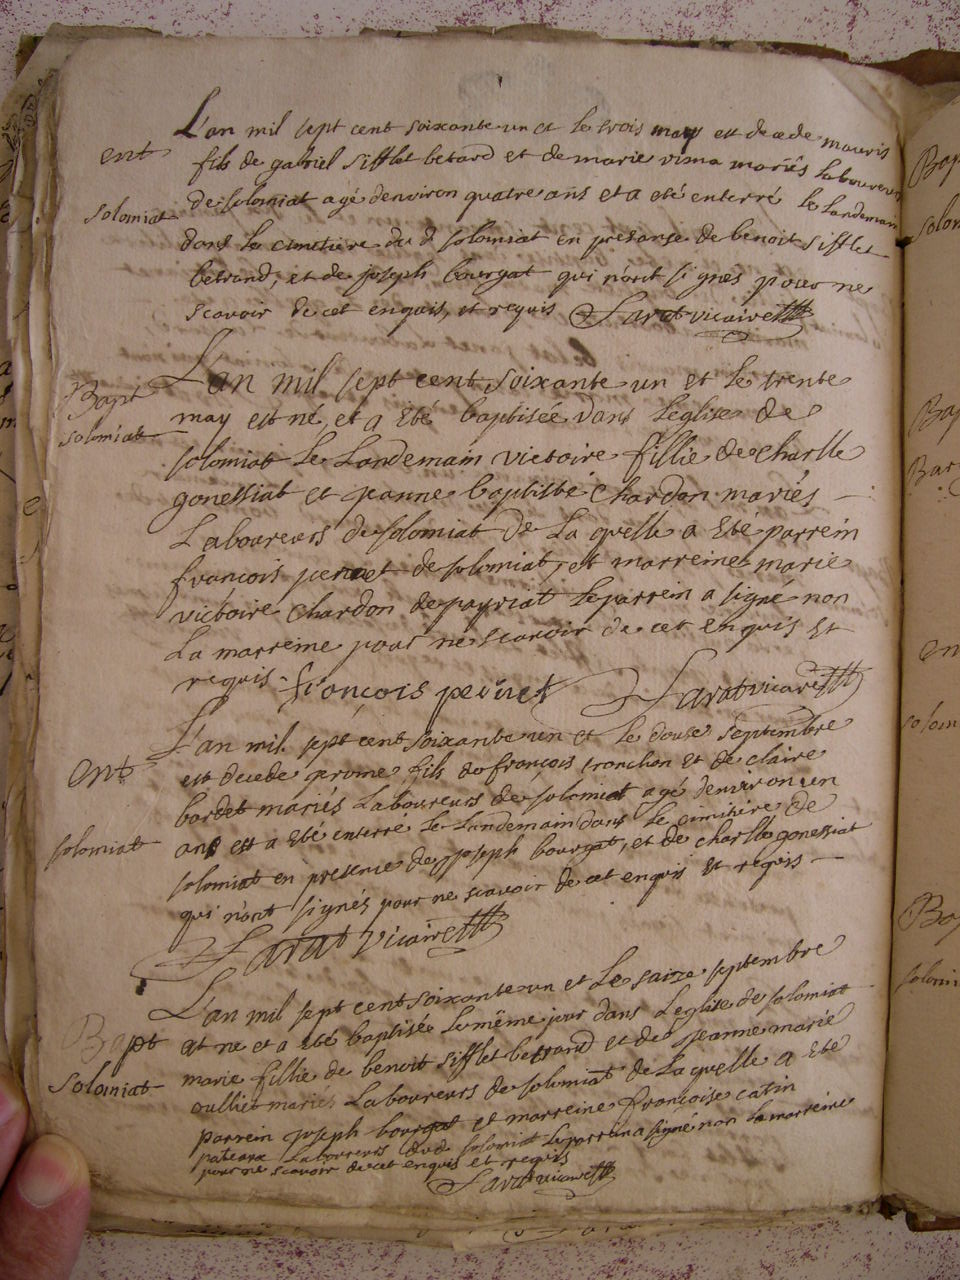 L'an mil sept cent soixante un et le trois may est decede mauris
ent
fils de gabriel sifflet betrand et de marie vima mariés laboureurs
solomiat
de solomiat agé denviron quatre ans et a eté enterré le landemain
dans le cimetiere du d solomiat en presanse de benoit sifflet
betrand, et de joseph bourgat qui n'ont signes pour ne
scavoir de cet enquis, et requis Sarat vicaire
L'an mil sept cent soixante un et le trente
Bapt
may est né, et a eté baptisée dans leglise de
solomiat
solomiat le landemain victoire fillie de charlle
gonessiat et jeanne baptiste chardon mariés
Laboureurs de solomiat de la quelle a ete parrein
françois pernet de solomiat, et marreine marie
victoire chardon de payriat le parrein a signé non
la marreine pour ne scavoir de cet enquis et
requis françois pernet Sarat vicaire
L'an mil sept cent soixante un et le douse septembre
ent
est decede jerome fils de françois tronchon et de claire
bordet mariés laboureurs de solomiat agé denviron un
solomiat
ans est a eté enterré le landemain dans le cimitiere de
solomiat en presence de joseph bourgat, et de charlle gonessiat
qui n'ont signés pour ne scavoir de cet enquis et requis
Sarat vicaire
L'an mil sept cent soixante un et le saize septembre
Bapt
at ne et a eté baptisée le même jour dans leglise de solomiat
solomiat
marie fillie de benoit sifflet betrand et de jeanne marie
oulliet mariés laboureurs de solomiat de la quelle a ete
parrein joseph bourgat et marreine françoise catin
laboureurs dud solomiat le parrein a signé non la marreine
pour ne scavoir de cet enquis et requis
Sarat vicaire
Bap
solom
Bap
Bar
en
solom
Bap
solomi